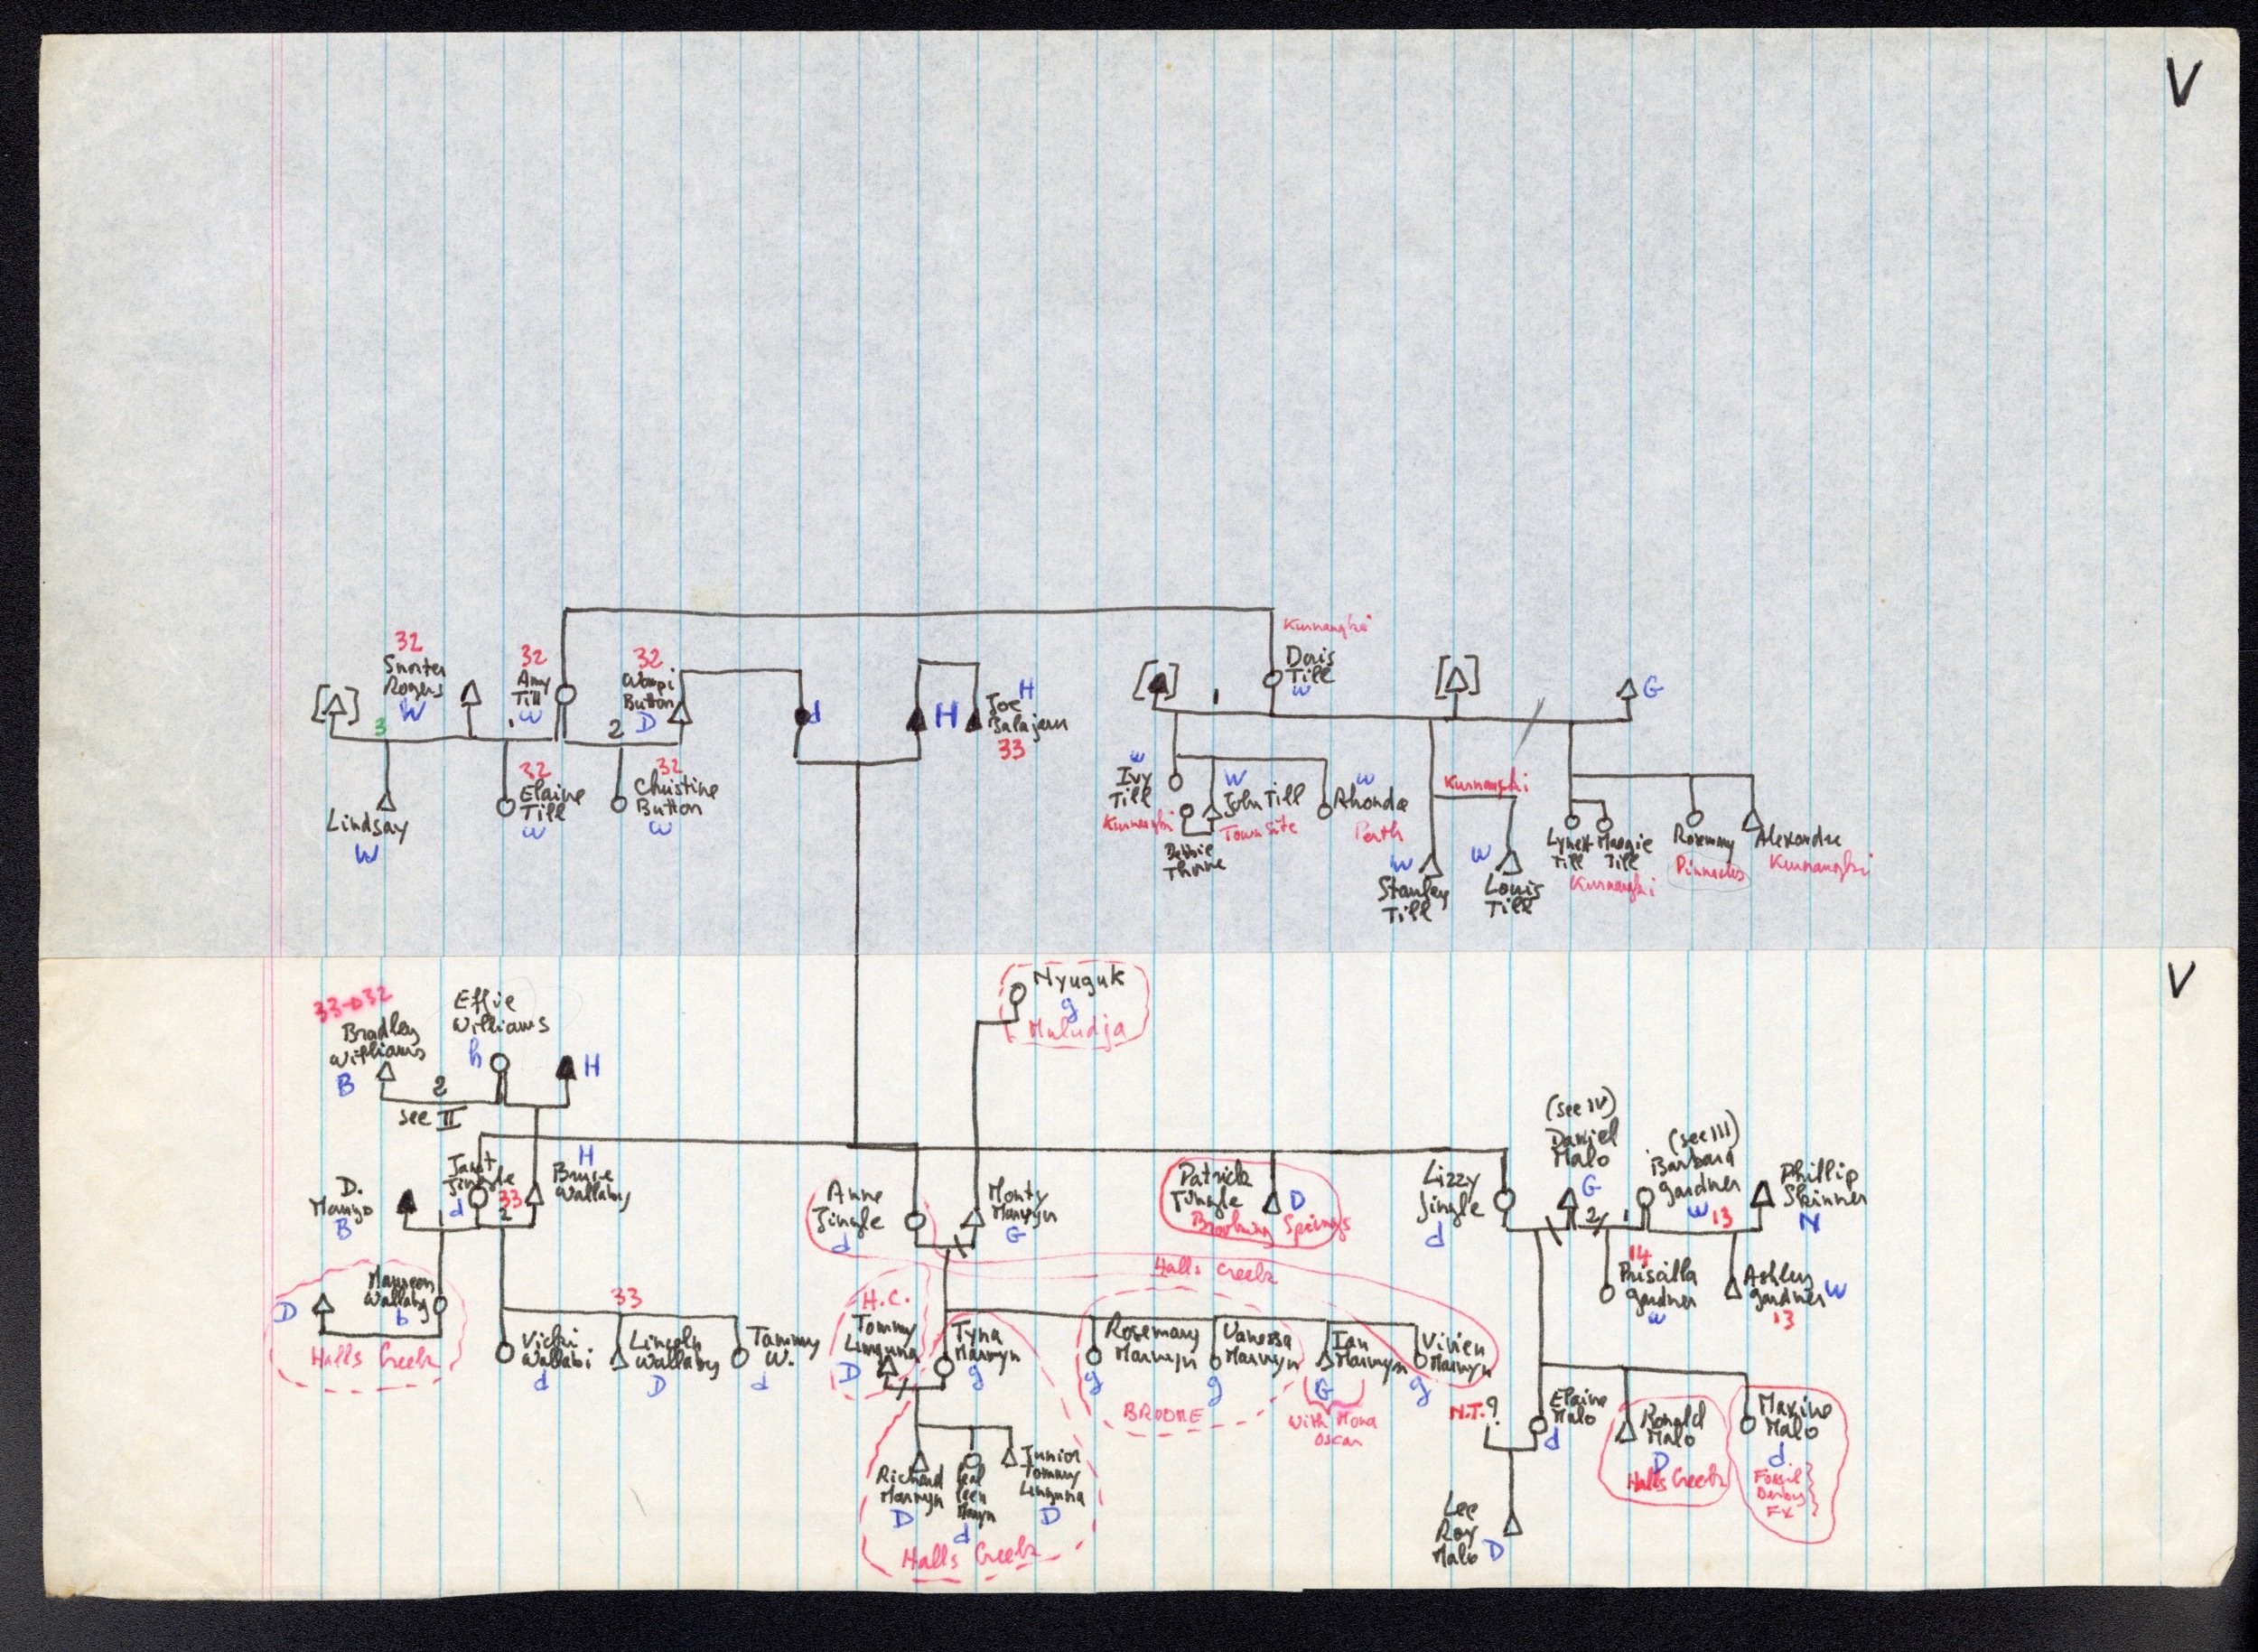 V
Kurnangki
32
Snorter
Rogers
W
32
Amy
Till
w
32
Button
D
d
H
H
Joe
33
Doris
Till
w
G
3
1
2
1
32
Elaine
Till
w
32
Christine
Button
w
Lindsay
W
w
Ivy
Till
Kurnangki
W
John Till
Town Site
Debbie
w
Rhonda
Perth
Kurnangki
W
Stanley
Till
W
Louis
Till
Till
Margie
Till
Kurnangki
Rosemary
Pinnacles
Kurnangki
V
Nyuguk
g
Muludja
33→32
Bradley
Williams
B
Effie
Williams
h
H
2
see II
D.
Mango
B
Janet
Jingle
d
1
33
2
H
Bruce
Wallaby
Anne
Jingle
d
Monty
G
Patrick
Jungle
D
Springs
Lizzy
Jingle
d
(see IV)
Daniel
Malo
G
2
1
(see III)
Barbara
Gardner
w
13
Phillip
Skinner
N
14
Priscilla
Gardner
w
Ashley
Gardner W
13
Halls Creek
D
Maureen
Wallaby
b
Halls Creek
33
Vicki
Wallabi
d
Lincoln
Wallaby
D
Tammy
W.
d
H.C.
Tommy
D
Tyna
g
Rosemary
g
Vanessa
g
BROOME
Ian
G
With Mona
Oscar
Vivien
g
N.T.?
Elaine
Malo
d
Ronald
Malo
D
Halls Creek
Maxine
Malo
d
Fossil
Derby
FX
Richard
D
d
Junior
Tommy
D
Halls Creek
Lee
Roy
Malo D